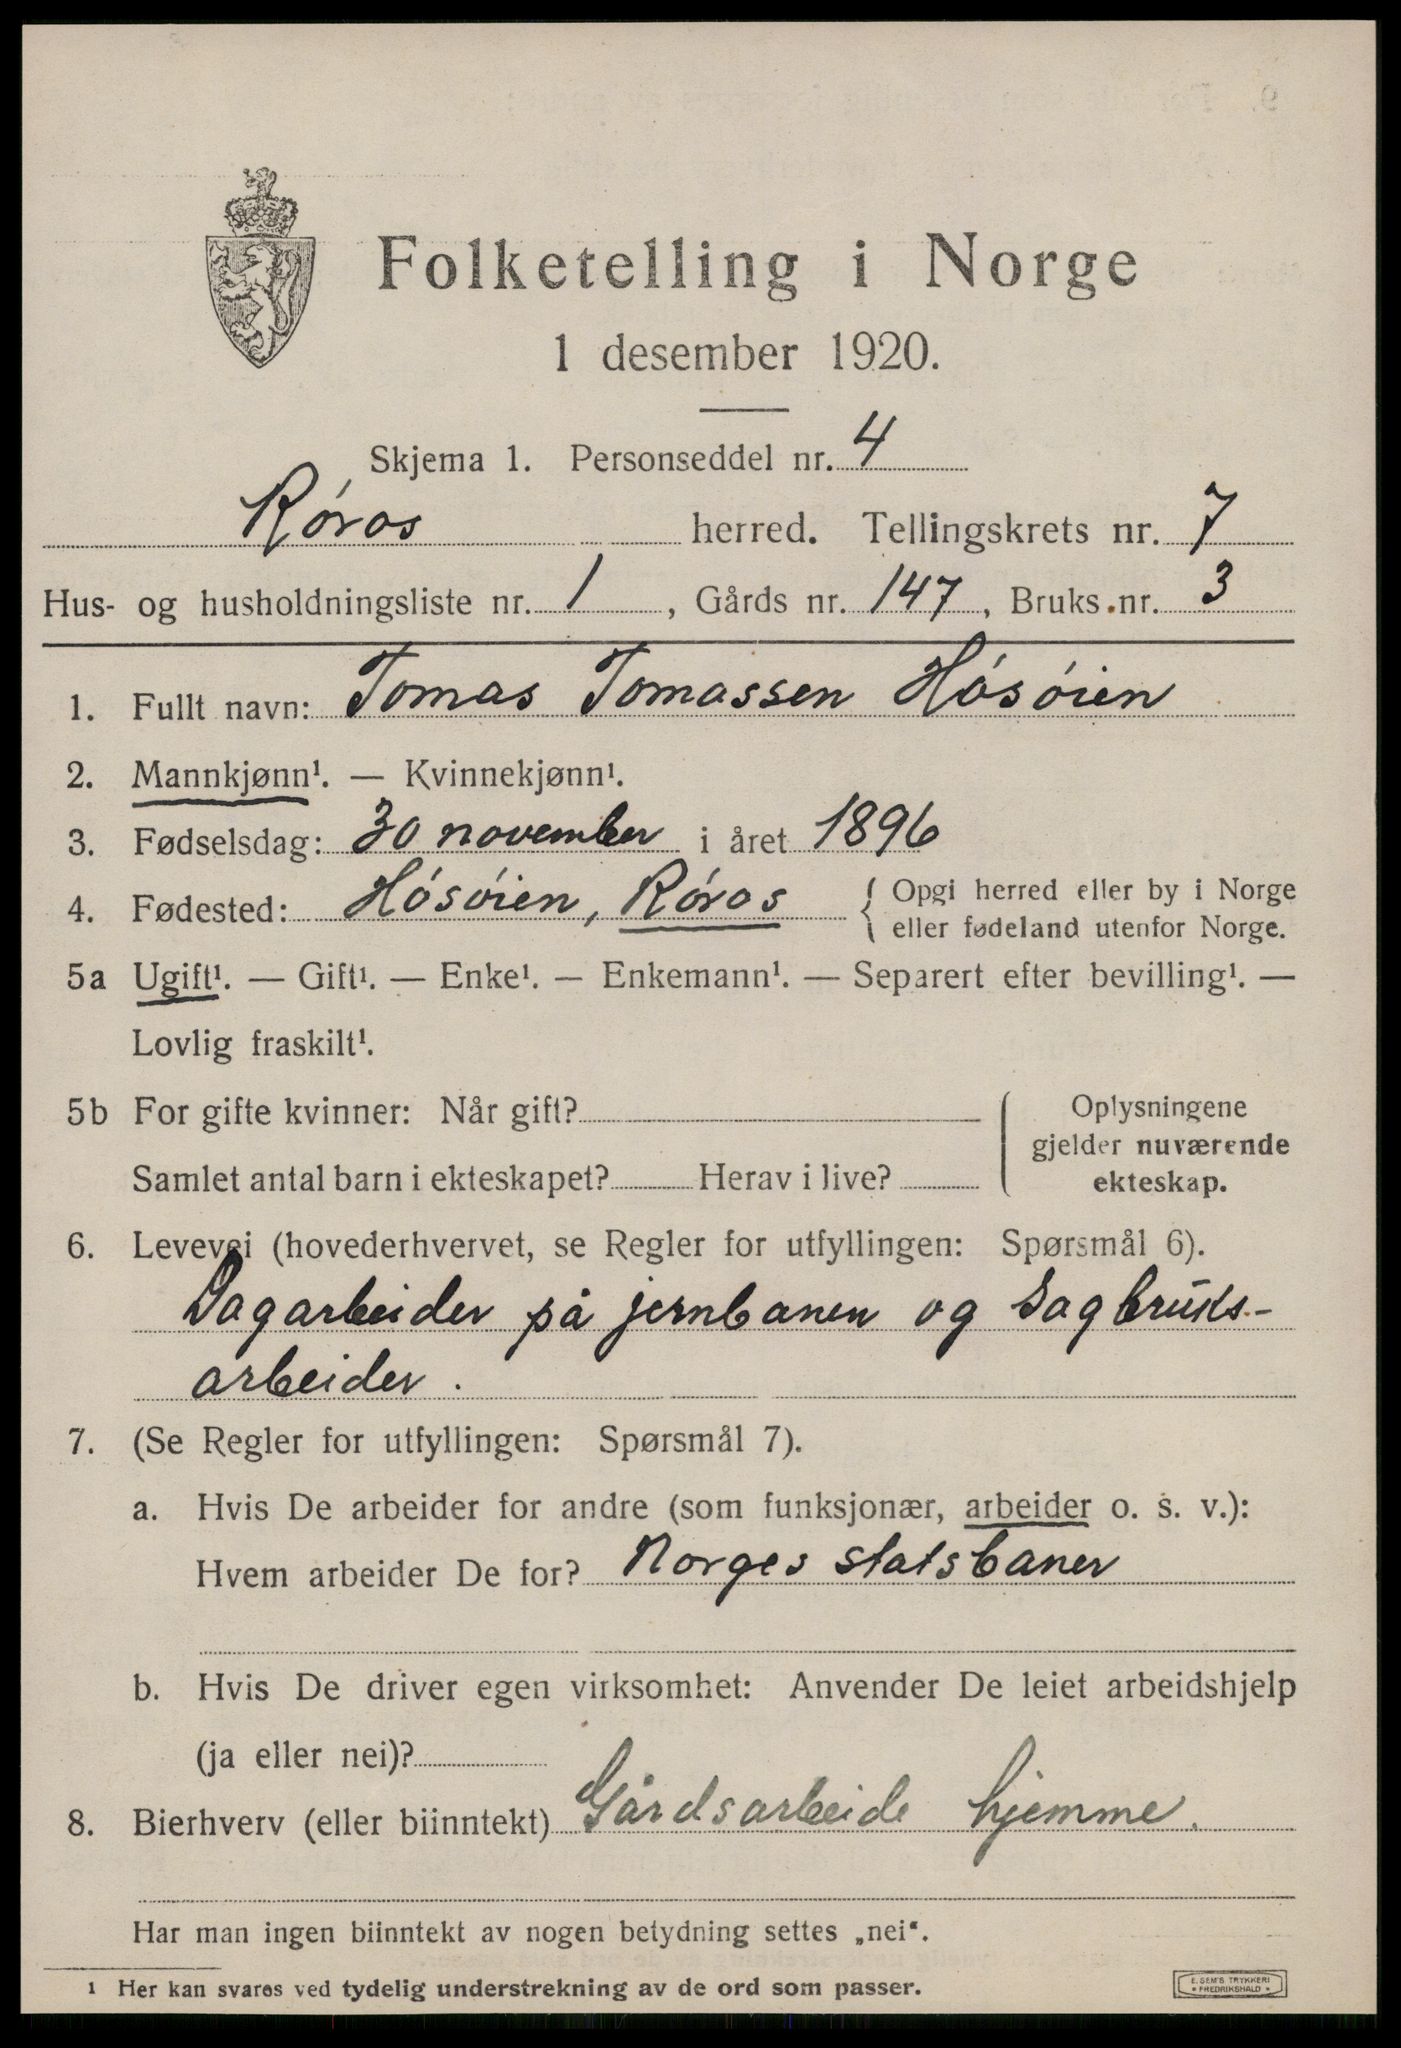 Folketelling i Norge
1 desember 1920.
Skjema 1. Personseddel nr. 4
Røros herred. Tellingskrets nr. 7
Hus- og husholdningsliste nr. 1, Gårds nr. 147, Bruks nr. 3
1. Fullt navn: Tomas Tomassen Hósóien
2. Mannkjønn¹. — Kvinnekjønn¹.
3. Fødselsdag: 30 november i året 1896
4. Fødested: Hósóien, Róros { Opgi herred eller by i Norge
eller fødeland utenfor Norge.
5a Ugift¹. — Gift¹. — Enke¹. — Enkemann¹. — Separert efter bevilling¹. —
Lovlig fraskilt¹.
5b For gifte kvinner: Når gift? Oplysningene
gjelder nuværende
Samlet antal barn i ekteskapet? Herav i live? ekteskap.
6. Levevei (hovederhvervet, se Regler for utfyllingen: Spørsmål 6).
Dagarbeider på jernbanen og Sagbruks-
arbeider.
7. (Se Regler for utfyllingen: Spørsmål 7).
a. Hvis De arbeider for andre (som funksjonær, arbeider o. s. v.):
Hvem arbeider De for? Norges statsbaner
b. Hvis De driver egen virksomhet: Anvender De leiet arbeidshjelp
(ja eller nei)?
8. Bierhverv (eller biinntekt) Gårdsarbeide hjemme.
Har man ingen biinntekt av nogen betydning settes „nei“.
¹ Her kan svares ved tydelig understrekning av de ord som passer.
E. SEM'S TRYKKERI
* FREDRIKSHALD *